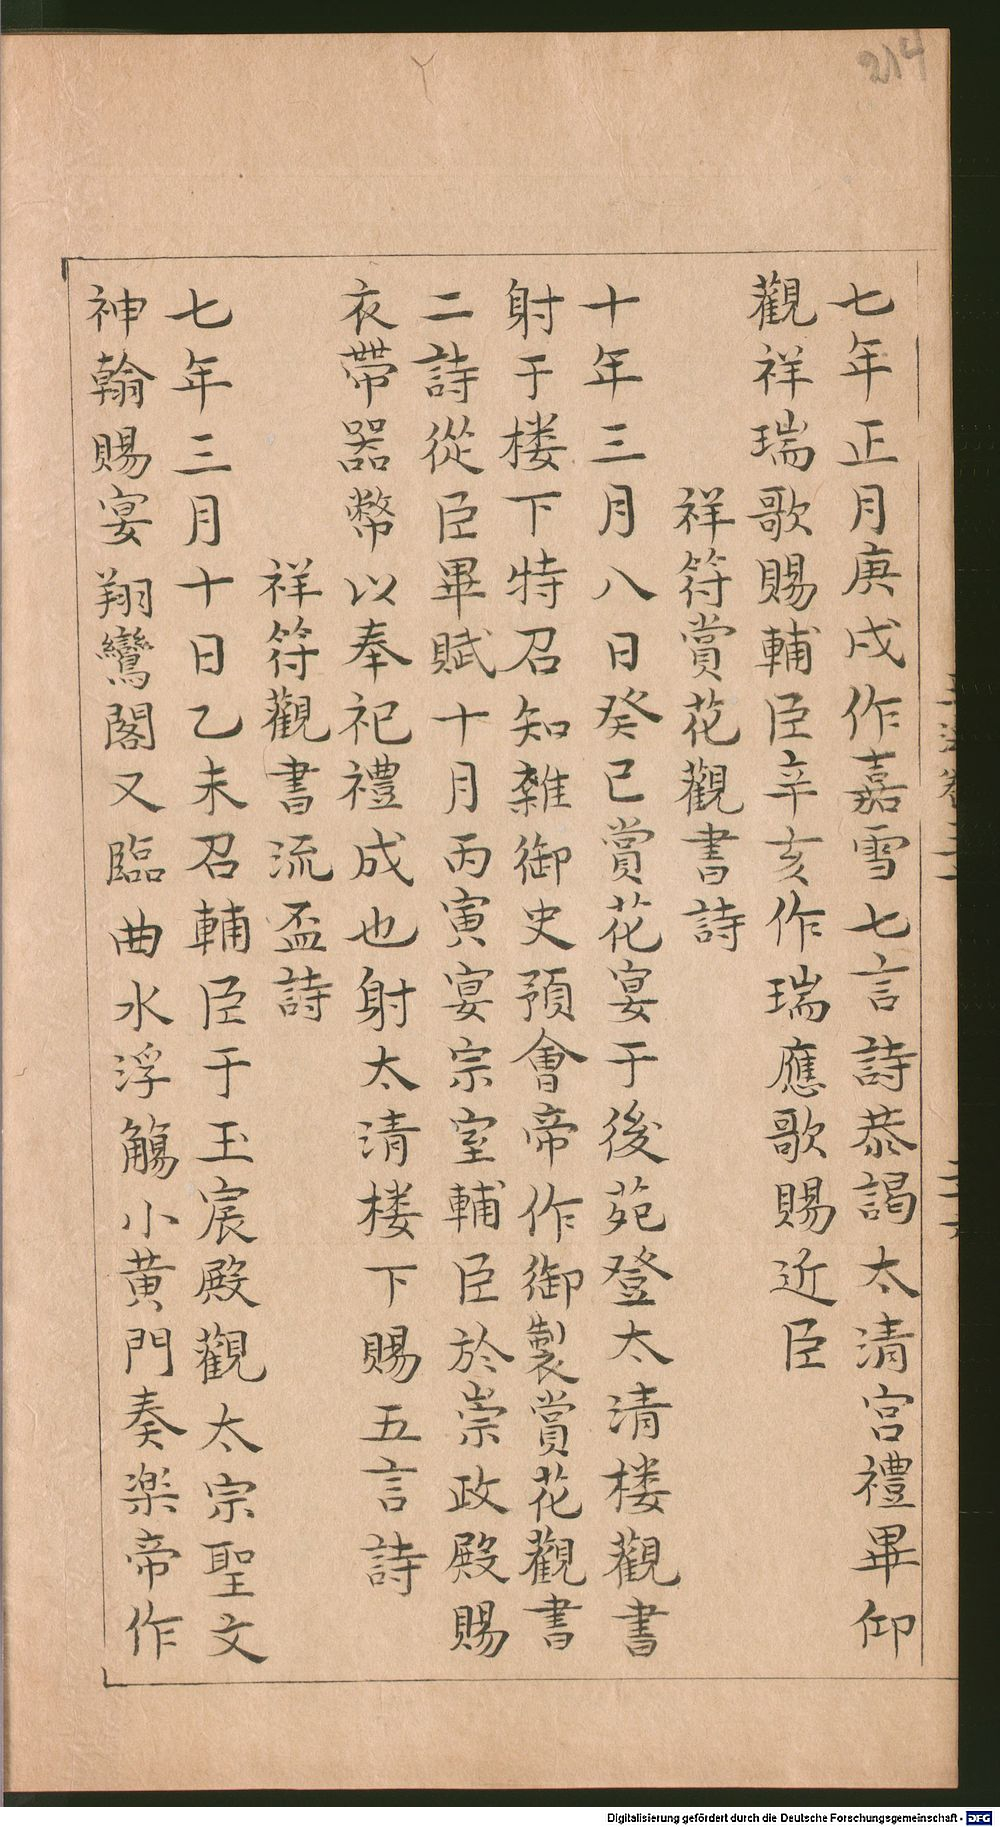 214
七年正月庚戌作嘉雪七言詩恭謁太清宮禮畢仰
觀祥瑞歌賜輔臣辛亥作瑞應歌賜近臣
祥符賞花觀書詩
十年三月八日癸已賞花宴于後苑登太清楼觀書
射于楼下特召知雜御史預會帝作御製賞花觀書
二詩從臣畢賦十月丙寅宴宗室輔臣於崇政殿賜
衣帶器幣以奉祀禮成也射太清楼下賜五言詩
祥符觀書流盃詩
七年三月十日乙未召輔臣于玉宸殿觀太宗聖文
神翰賜宴翔鸞閣又臨曲水浮觴小黄門奏楽帝作
Digitalisierung gefördert durch die Deutsche Forschungsgemeinschaft - DFG